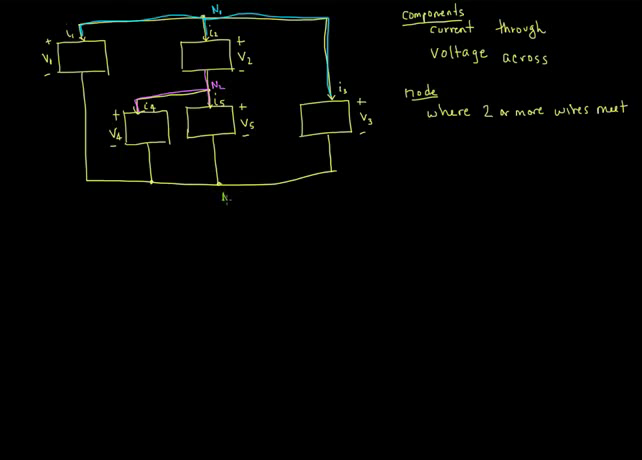 N1
i1
i2
+
V1
-
+
V2
-
N2
i4
i5
i3
+
V4
-
+
V5
-
+
V3
-
N
Components
current through
Voltage across
node
where 2 or more wires meet